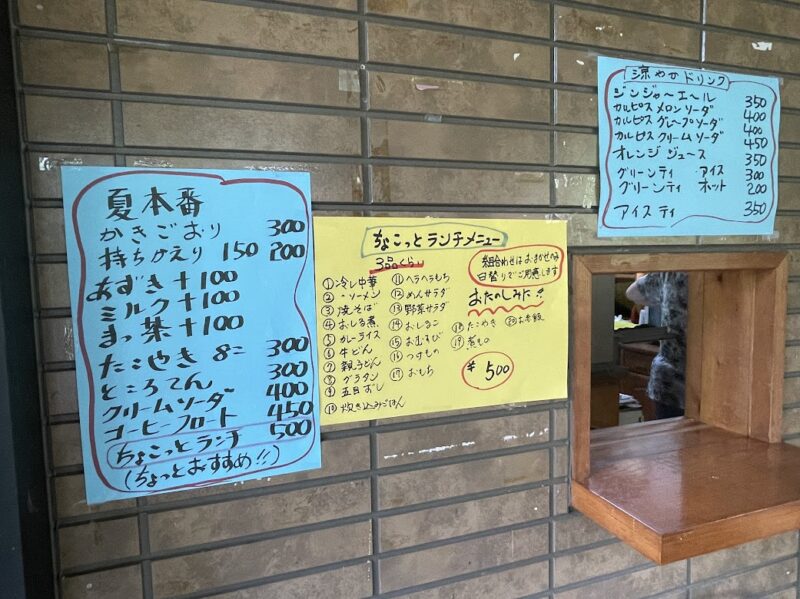 夏本番
かきごおり 300
持ちかえり 150 200
あずき+100
ミルク+100
まっ茶+100
たこやき 8コ 300
ところてん 300
クリームソーダ 400
コーヒーフロート 450
ちょこっとランチ 500
(ちょっとおすすめ!!)
ちょこっとランチメニュー
3品くらい
①冷し中華
②〃ソーメン
③焼そば
④おしる煮
⑤カレーライス
⑥牛どん
⑦親子どん
⑧グラタン
⑨五目ずし
⑩炊き込みごはん
⑪ヘラヘラもち
⑫めんサラダ
⑬野菜サラダ
⑭おしるこ
⑮おむすび
⑯つけもの
⑰おもち
⑱たこやき
⑲煮もの
⑳お赤飯
組合わせはおまかせのみ
日替りでご用意します
おたのしみに!!
¥500
涼やかドリンク
ジンジャーエール 350
カルピスメロンソーダ 400
カルピスグレープソーダ 400
カルピスクリームソーダ 450
オレンジジュース 350
グリーンティ アイス 300
グリーンティ ホット 200
アイスティ 350